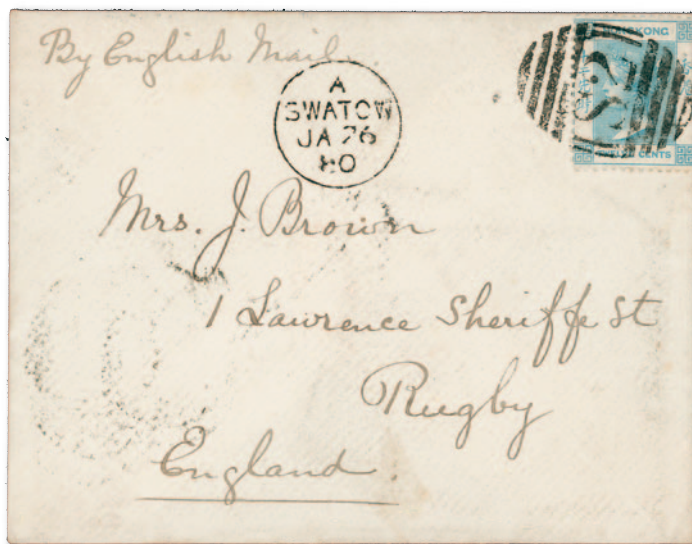 By English Mail
HONG KONG
A
SWATOW
JA 26
80
S2
TWELVE CENTS
Mrs. J. Brown
1 Lawrence Sheriffe St
Rugby
England.